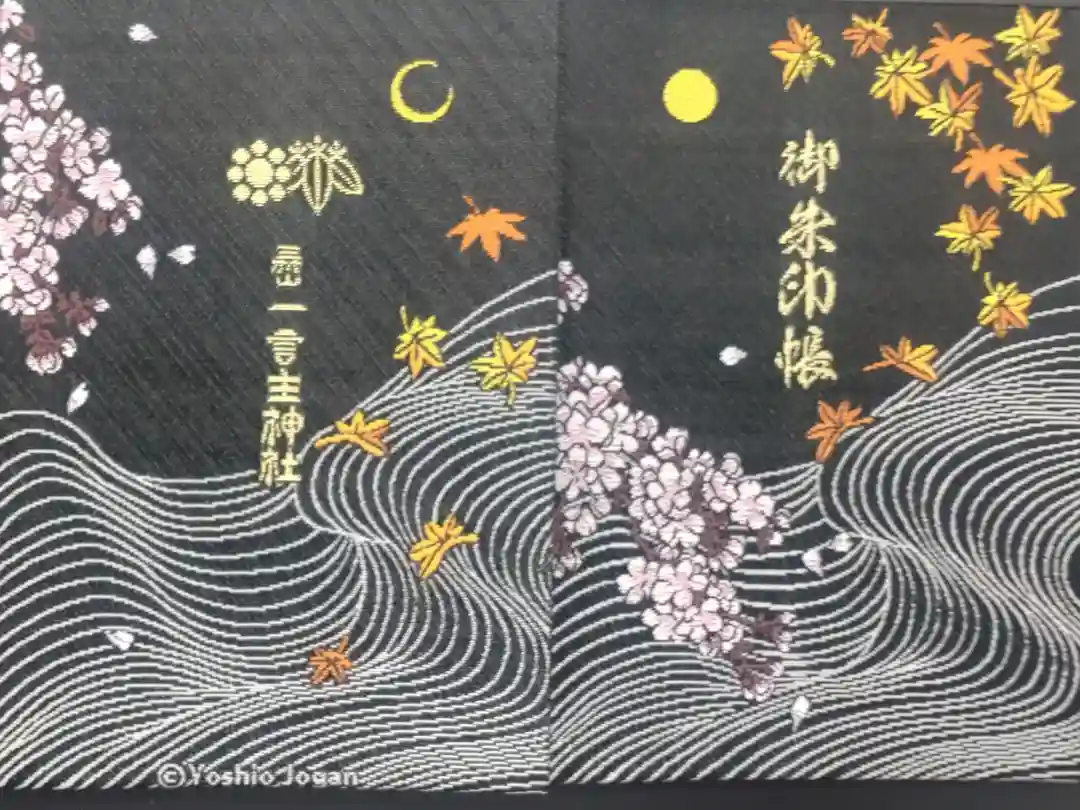 一言主神社
御朱印帳
©Yoshio Jogan